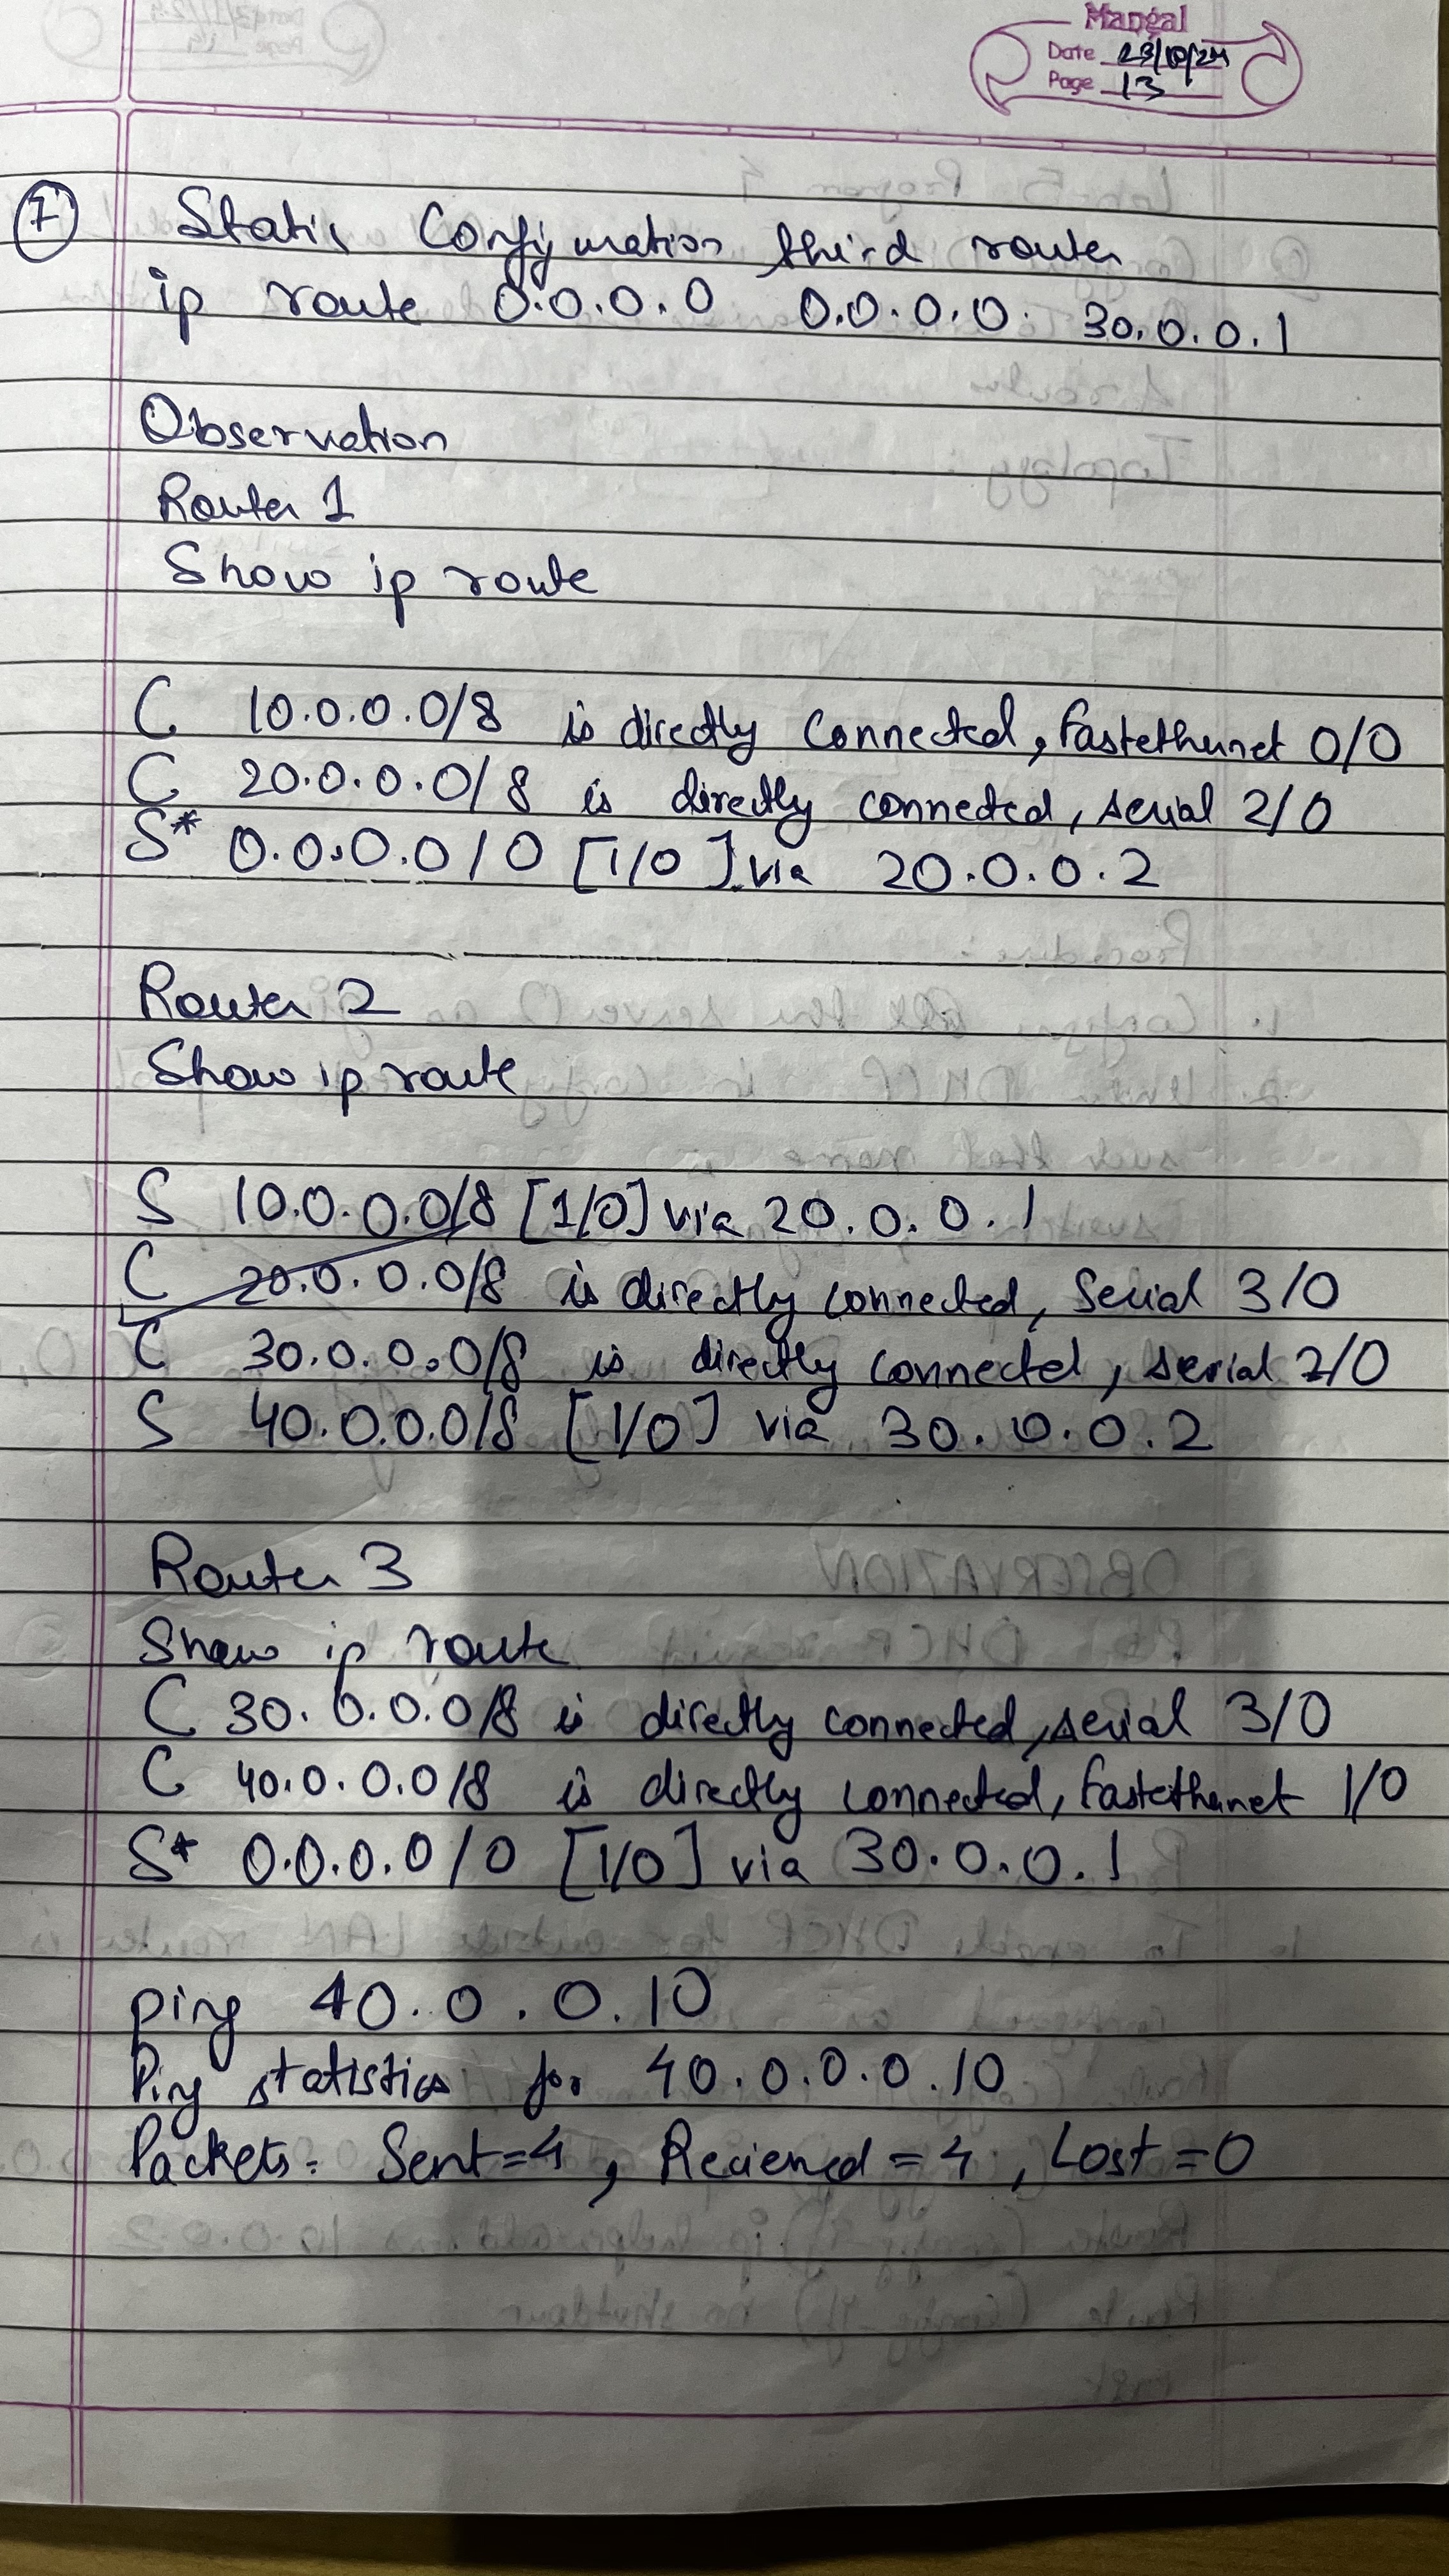 Mangal
Date 23/10/24
Page 13
7 Static Configuration third router
ip route 0.0.0.0 0.0.0.0. 30.0.0.1
Observation
Router 1
Show ip route
C 10.0.0.0/8 is directly connected, fastethernet 0/0
C 20.0.0.0/8 is directly connected, serial 2/0
S* 0.0.0.0/0 [1/0] via 20.0.0.2
Router 2
Show ip route
S 10.0.0.0/8 [1/0] via 20.0.0.1
C 20.0.0.0/8 is directly connected, Serial 3/0
C 30.0.0.0/8 is directly connected, serial 2/0
S 40.0.0.0/8 [1/0] via 30.0.0.2
Router 3
Show ip route
C 30.0.0.0/8 is directly connected, serial 3/0
C 40.0.0.0/8 is directly connected, fastethernet 1/0
S* 0.0.0.0/0 [1/0] via 30.0.0.1
ping 40.0.0.10
Ping statistics for 40.0.0.0.10
Packets: Sent=4, Recieved=4, Lost=0